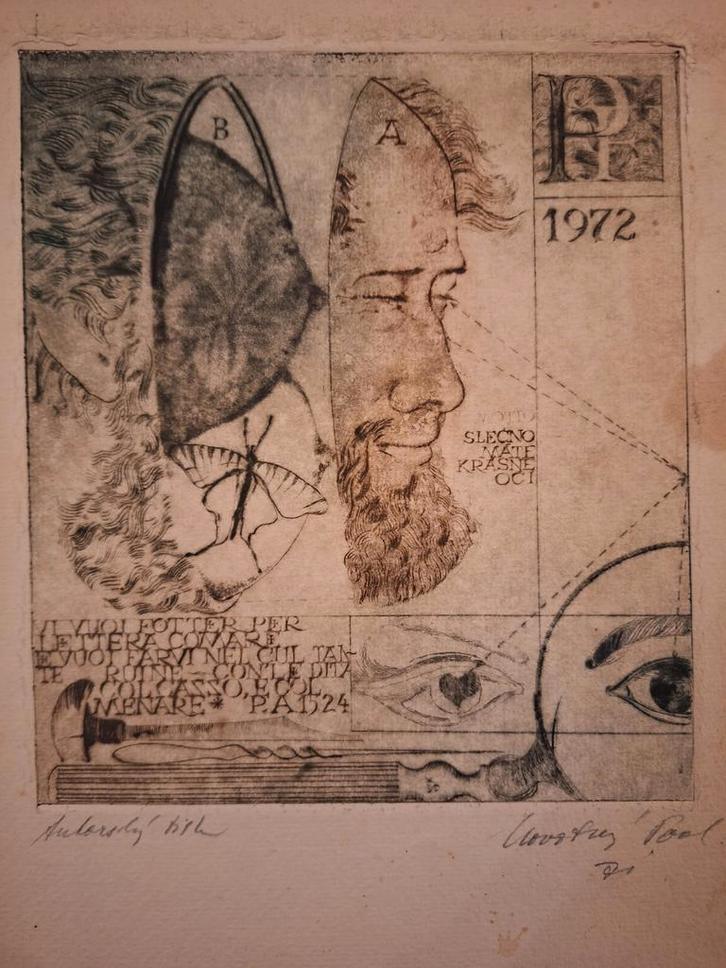 B
A
PF
1972
MOTTO
SLEČNO
MÁTE
KRÁSNÉ
OČI
VI VUOI FOTTER PER
LETTERA COMARE
E VUOI FARVI NEL CUL TAN-
TE RUINE – CON LE DITA
COL CAZZO, E COL
MENARE* P.A 1524
Autorský tisk
Novotný Pool